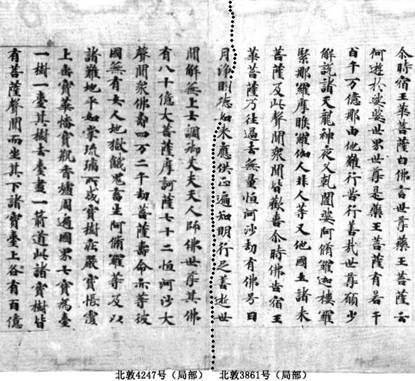 尒時宿王華菩薩白佛言世尊藥王菩薩云
何遊於娑婆世界世尊是藥王菩薩有若干
百千万億那由他難行苦行善哉世尊願少
解説諸天龍神夜叉乾闥婆阿脩羅迦樓羅
緊那羅摩睺羅伽人非人等又他國土諸来
菩薩及此聲聞衆聞皆歡喜尒時佛告宿王
華菩薩乃往過去無量恒河沙劫有佛号曰
月淨明德如来應供正遍知明行足善逝世
間解無上士調御丈夫天人師佛世尊其佛
有八十億大菩薩摩訶薩七十二恒河沙大
聲聞衆佛壽四万二千劫菩薩壽命亦等彼
國無有女人地獄餓鬼畜生阿脩羅等及以
諸難地平如掌琉璃所成寶樹莊嚴寶帳覆
上垂寶華幡寶瓶香爐周遍國界七寶為臺
一樹一臺其樹去臺盡一箭道此諸寶樹皆
有菩薩聲聞而坐其下諸寶臺上各有百億
北敦4247号（局部）
北敦3861号（局部）